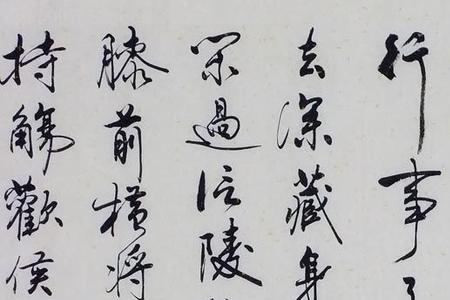 行事了
去深藏身
閑過信陵
膝前橫將
持觴勸侯